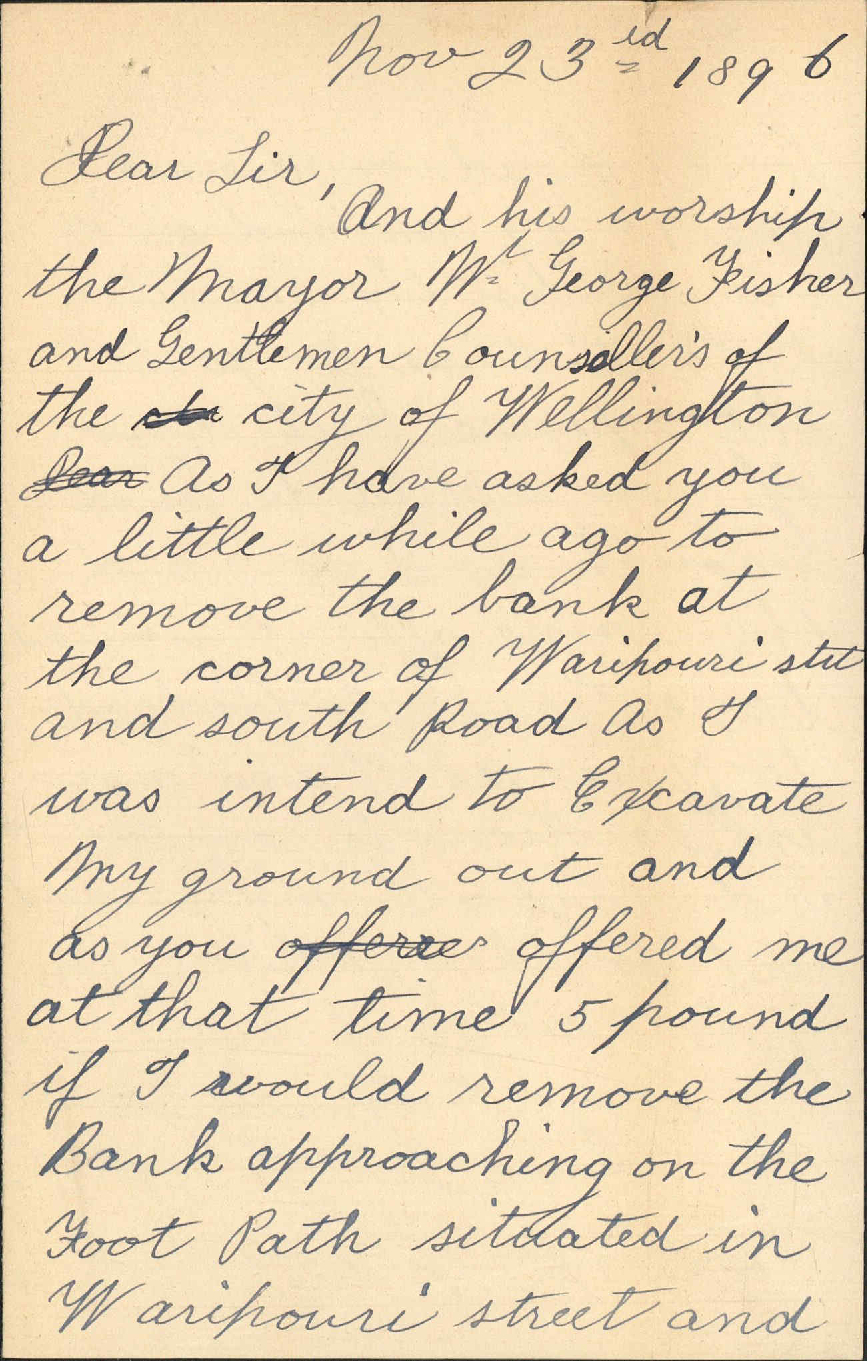 Nov 23rd 1896
Dear Sir,
And his worship
the Mayor Mr George Fisher
and Gentlemen Counsellers of
the city of Wellington
Dear As I have asked you
a little while ago to
remove the bank at
the corner of Waripouri stt
and south Road As I
was intend to Excavate
My ground out and
as you offeres offered me
at that time 5 pound
if I would remove the
Bank approaching on the
Foot Path situated in
Waripouri street and